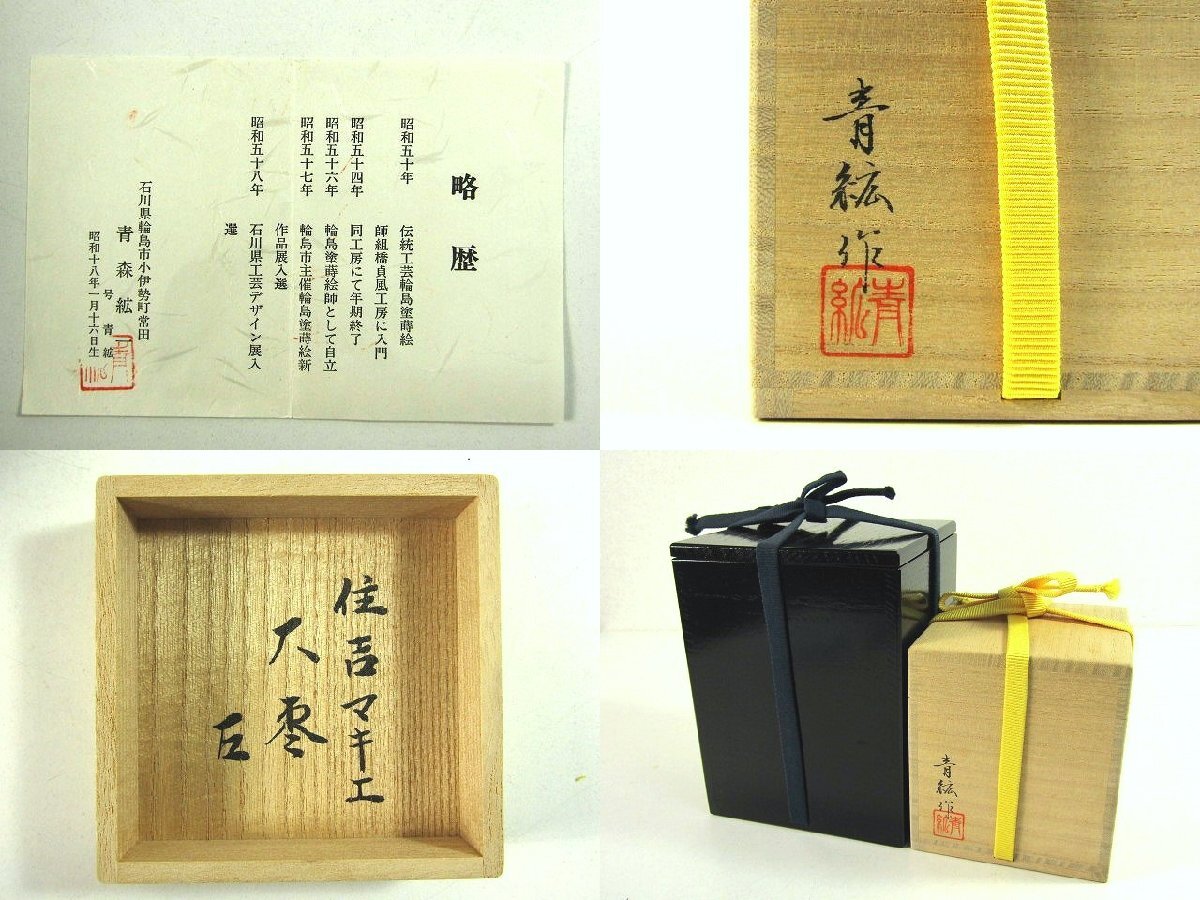 略歴
昭和五十年 伝統工芸輪島塗蒔絵
師組橋貞風工房に入門
昭和五十四年 同工房にて年期終了
昭和五十六年 輪島塗蒔絵師として自立
昭和五十七年 輪島市主催輪島塗蒔絵新
作品展入選
昭和五十八年 石川県工芸デザイン展入
選
石川県輪島市小伊勢町常田
青森紘
号青紘
昭和十八年一月十六日生
青紘作
青紘
住吉マキエ
大棗
青紘作
青紘